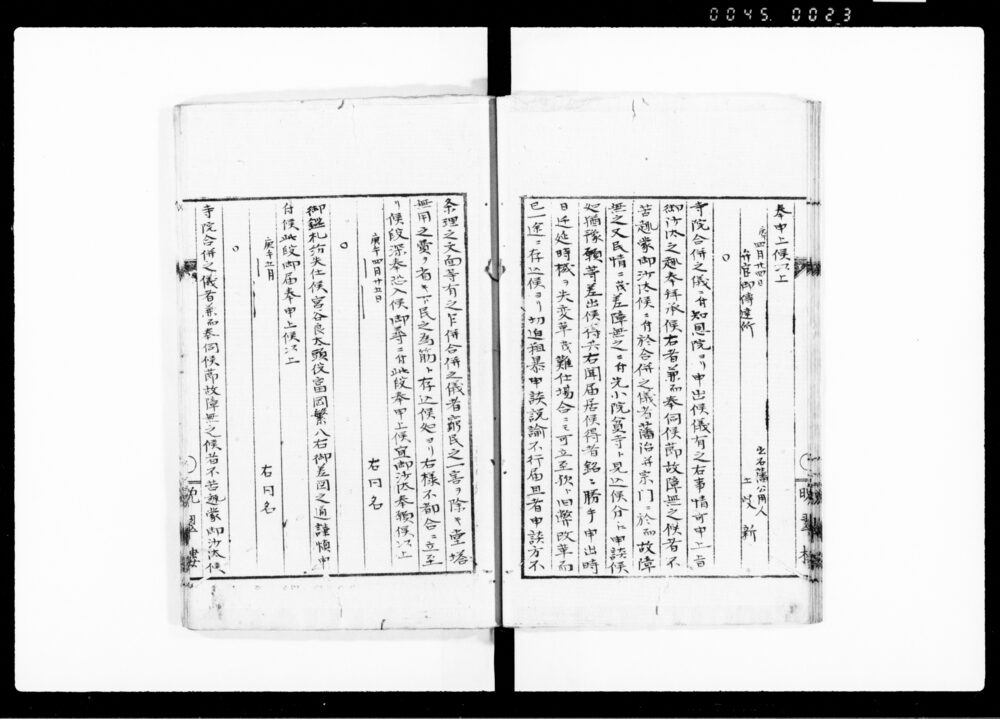 0045 0023
奉申上候以上
庚四月廿四日
弁官御傳達所
出石藩公用人
土岐新
○
寺院合併之儀ニ付知恩院ヨリ申出候儀有之右事情可申上旨
御沙汰之趣奉拜承候右者兼而奉伺候節故障無之候者不
苦趣蒙御沙汰候ニ付於合併之儀者藩治并宗門ニ於而故障
無之又民情ニ茂差障無之ニ付先小院貧寺ト見込候分ト申談候
処猶豫願等差出候ニ付右聞届居候得者銘々勝手申出時
日迁延時機ヲ失変革茂難仕場合ニモ可立至歟ト旧弊改革而
已一途ニ存込候ヨリ切迫粗暴申談説諭不行届且者申談方不
晩翠樓
条理之文面等有之乍併合併之儀者窮民之一害ヲ除キ堂塔
無用之費ヲ省キ下民之為筋ト存込候処ヨリ右様不都合ニ立至
リ候段深奉恐入候御尋ニ付此段奉申上候宜御沙汰奉願候以上
庚午四月廿五日
右同名
○
御鑑札紛失仕候宮谷良太頭役富岡繁八右御差図之通謹慎申
付候此段御届奉申上候以上
庚午五月
右同名
○
寺院合併之儀者兼而奉伺候節故障無之候者不苦趣蒙御沙汰候
晩翠樓